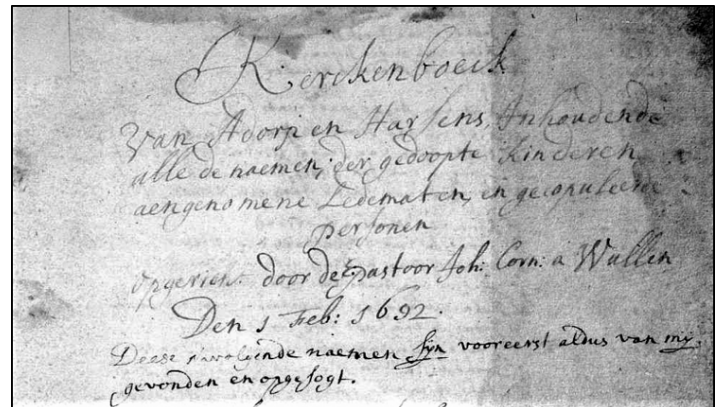 Kerckenboeck
van Adorp en Harsens, Inhoudende
alle de naemen, der gedoopte Kinderen
aengenomene Ledematen, en gecopuleerde
personen
opgericht door de pastoor Joh: Corn: a Wullen
Den 1 Feb: 1692.
Deese navolgende naemen syn vooreerst aldus van my
gevonden en opgesogt.